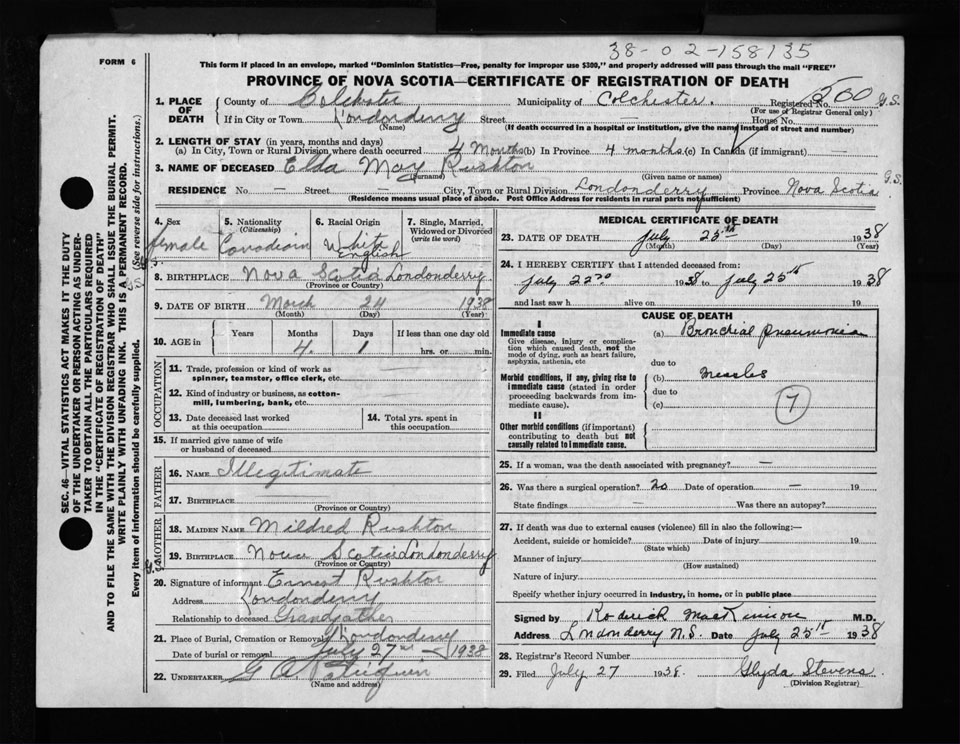 38-02-158135
FORM 6
This form if placed in an envelope, marked "Dominion Statistics—Free, penalty for improper use $300," and properly addressed will pass through the mail "FREE"
PROVINCE OF NOVA SCOTIA—CERTIFICATE OF REGISTRATION OF DEATH
1. PLACE OF DEATH
County of Colchester Municipality of Colchester. Registered No. 500 G.S.
(For use of Registrar General only)
If in City or Town Londonderry Street House No.
(Name) (If death occurred in a hospital or institution, give the name instead of street and number)
2. LENGTH OF STAY (in years, months and days)
(a) In City, Town or Rural Division where death occurred 4 Months (b) In Province 4 months (c) In Canada (if immigrant) —
3. NAME OF DECEASED Elda May Rushton
(Surname) (Given name or names)
RESIDENCE No — Street — City, Town or Rural Division Londonderry Province Nova Scotia G.S.
(Residence means usual place of abode. Post Office Address for residents in rural parts not sufficient)
4. Sex
female
5. Nationality
(Citizenship)
Canadian
6. Racial Origin
White
English
7. Single, Married, Widowed or Divorced
(write the word)
8. BIRTHPLACE Nova Scotia Londonderry
(Province or Country)
9. DATE OF BIRTH March 24 1938
(Month) (Day) (Year)
10. AGE in
Years Months Days If less than one day old
4. 1 hrs. or min.
OCCUPATION
11. Trade, profession or kind of work as
spinner, teamster, office clerk, etc.
12. Kind of industry or business, as cotton-
mill, lumbering, bank, etc.
13. Date deceased last worked
at this occupation
14. Total yrs. spent in
this occupation
15. If married give name of wife
or husband of deceased
FATHER
16. NAME Illegitimate
17. BIRTHPLACE
(Province or Country)
MOTHER
18. MAIDEN NAME Mildred Rushton
19. BIRTHPLACE Nova Scotia Londonderry
(Province or Country)
20. Signature of informant Ernest Rushton
Address Londonderry
Relationship to deceased Grandfather
21. Place of Burial, Cremation or Removal Londonderry
Date of burial or removal July 27 1938
22. UNDERTAKER G
(Name and address)
MEDICAL CERTIFICATE OF DEATH
23. DATE OF DEATH July 25th 1938
(Month) (Day) (Year)
24. I HEREBY CERTIFY that I attended deceased from:
July 22nd 1938 to July 25th 1938
and last saw h alive on 19
CAUSE OF DEATH
I
Immediate cause
Give disease, injury or complica-
tion which caused death, not the
mode of dying, such as heart failure,
asphyxia, asthenia, etc
(a) Bronchial pneumonia
due to
Morbid conditions, if any, giving rise to
immediate cause (stated in order
proceeding backwards from im-
mediate cause).
(b) Measles
due to
(c)
7
II
Other morbid conditions (if important)
contributing to death but not
causally related to immediate cause.
25. If a woman, was the death associated with pregnancy? —
26. Was there a surgical operation? no Date of operation — 19
State findings — Was there an autopsy?
27. If death was due to external causes (violence) fill in also the following:—
Accident, suicide or homicide? Date of injury 19
(State which)
Manner of injury
(How sustained)
Nature of injury
Specify whether injury occurred in industry, in home, or in public place
Signed by Roderick MacKinnon M.D.
Address Londonderry N.S. Date July 25th 1938
28. Registrar's Record Number
29. Filed July 27 1938. Glyda Stevens
(Division Registrar)
SEC. 46—VITAL STATISTICS ACT MAKES IT THE DUTY
OF THE UNDERTAKER OR PERSON ACTING AS UNDER-
TAKER TO OBTAIN ALL THE PARTICULARS REQUIRED
IN THE "CERTIFICATE OF REGISTRATION OF DEATH"
AND TO FILE THE SAME WITH THE DIVISION REGISTRAR WHO SHALL ISSUE THE BURIAL PERMIT.
WRITE PLAINLY WITH UNFADING INK. THIS IS A PERMANENT RECORD.
Every item of information should be carefully supplied. (See reverse side for instructions.)